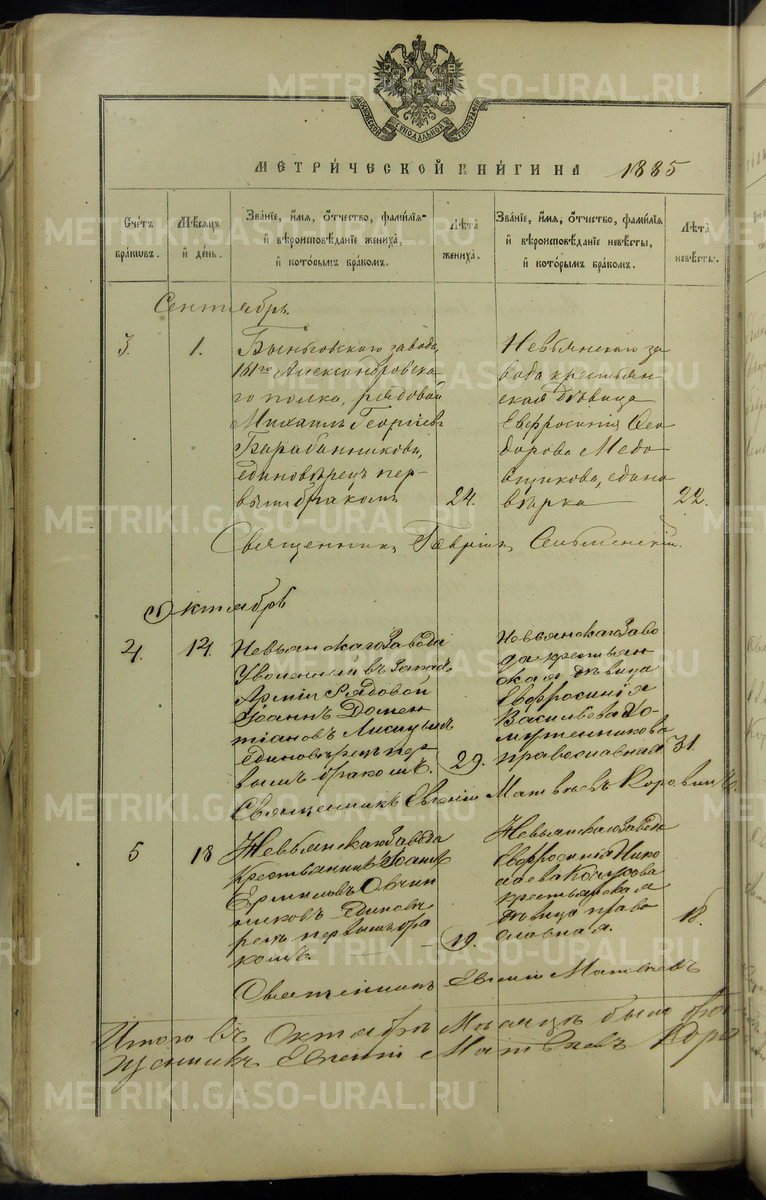 МОСКОВСКОЙ СѴНОДАЛЬНОЙ ТИПОГРАФІИ
МЕТРИ́ЧЕСКОЙ КНИ́ГИ НА 1885
Сче́тъ бра́ковъ.
Мѣ́сяцъ и҆ де́нь.
Зва́нїе, и҆́мя, ѻ҆́тчество, фами́лїя и҆ вѣроисповѣ́данїе жениха̀, и҆ кото́рымъ бра́комъ.
Лѣ́та жениха̀.
Зва́нїе, и҆́мя, ѻ҆́тчество, фами́лїя и҆ вѣроисповѣ́данїе невѣ́сты, и҆ кото́рымъ бра́комъ.
Лѣ́та невѣ́сты.
Сентябрь.
3. 1.
Быньговскаго завода,
161го Александропска
го полка, рядовой
Михаилъ Георгіевъ
Барабанщиковъ,
единовѣрецъ пер-
вымъ бракомъ 24.
Невьянскаго за
вода крестьян
ская дѣвица
Евфросинія Ѳео
дорова Медо
вщикова, едино
вѣрка 22.
Священникъ Гавріилъ
Октябрь
4. 14.
Невьянскаго Завода
Уволенный въ Запасъ
Арміи Рядовой
Іоаннъ Домен
тіановъ Лисицынъ
единовѣрецъ пер
вымъ бракомъ. 29.
Невьянскаго Заво
да крестьян
ская дѣвица
Евфросинія
Васильева
православная 31.
Священникъ Евгеній Матвѣевъ Коровинъ.
5 18
Невьянскаго Завода
Крестьянинъ Іоаннъ
Ермиловъ Овчин
никовъ Единовѣ
рецъ первымъ бра
комъ. 19.
Невьянскаго Завода
Евфросинія Нико
лаева
крестьянская
дѣвица право
славная. 18.
Священникъ Евгеній Матвѣевъ
Итого въ Октябрѣ Мѣсяцѣ было
Евгеній Матвѣевъ Коро
METRIKI.GASO-URAL.RU